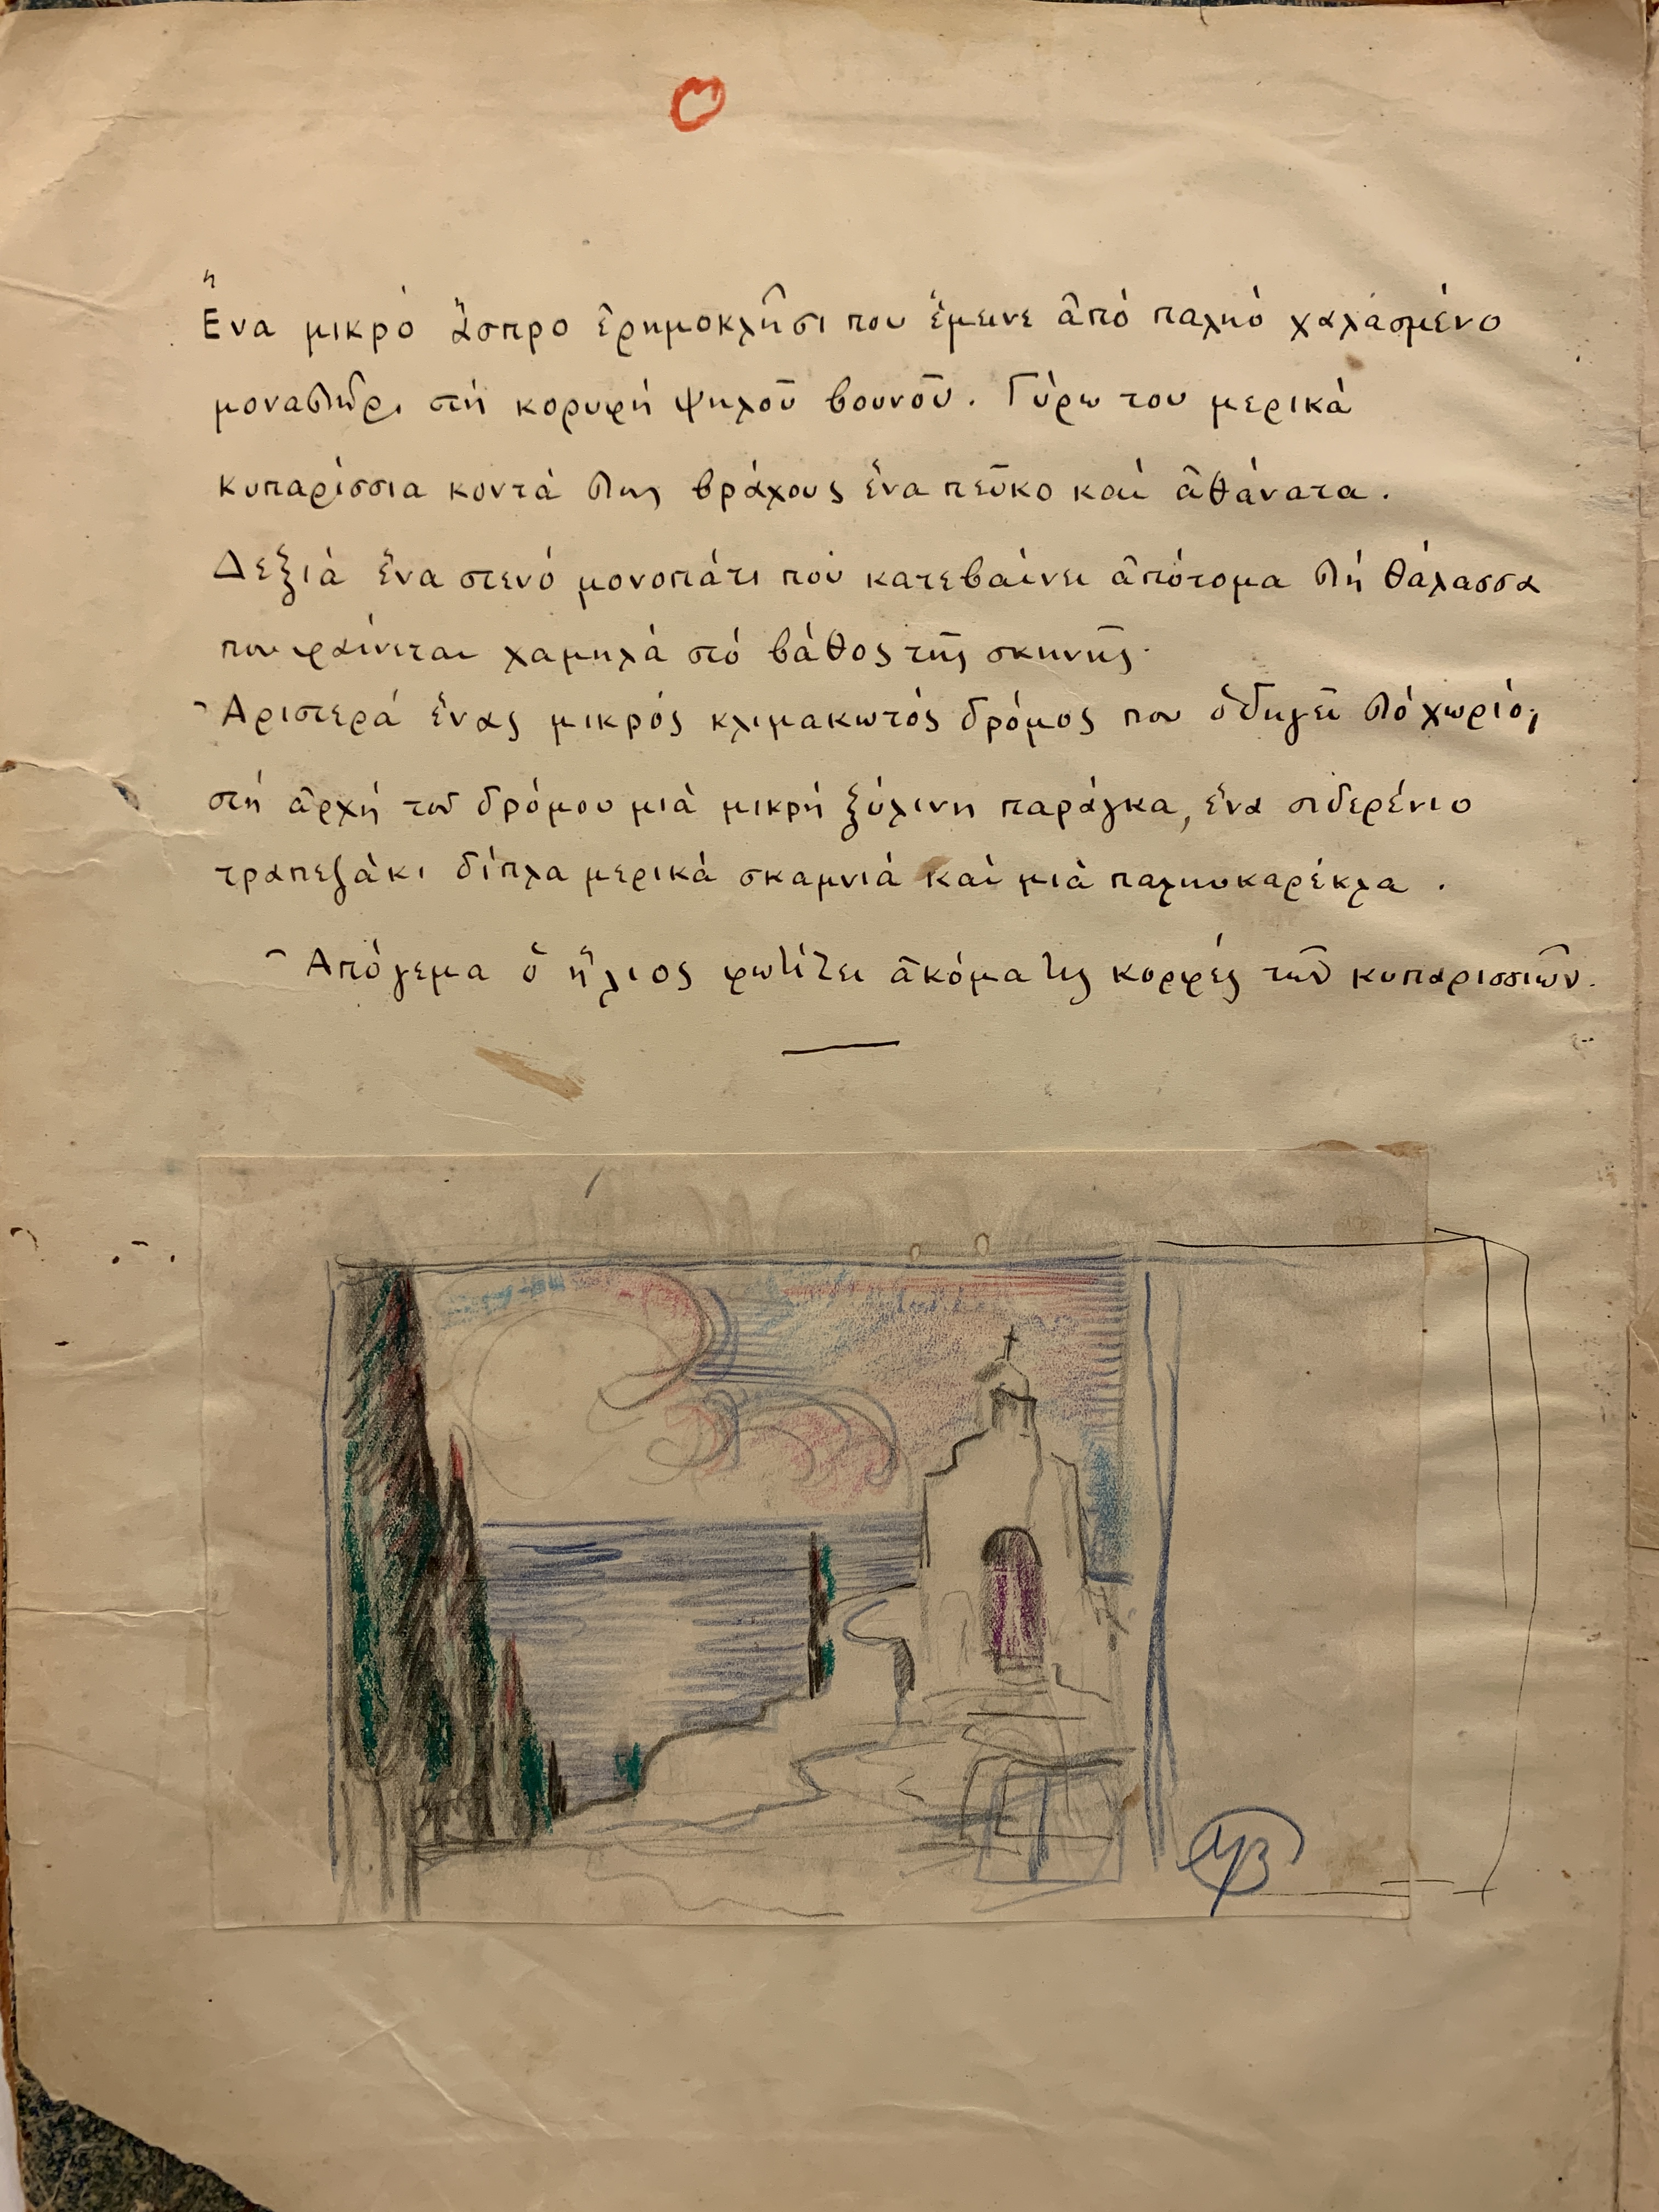 Ἕνα μικρό ἄσπρο ἐρημοκλῆσι που ἔμεινε ἀπό παληό χαλασμένο
μοναστῆρι στή κορυφή ψηλοῦ βουνοῦ. Γύρω του μερικά
κυπαρίσσια κοντά στους βράχους ἕνα πεῦκο καί ἀθάνατα.
Δεξιά ἕνα στενό μονοπάτι πού κατεβαίνει ἀπότομα στή θάλασσα
που φαίνεται χαμηλά στό βάθος τῆς σκηνῆς.
Ἀριστερά ἕνας μικρός κλιμακωτός δρόμος που ὁδηγεῖ στό χωριό,
στή ἀρχή τοῦ δρόμου μιά μικρή ξύλινη παράγκα, ἕνα σιδερένιο
τραπεζάκι δίπλα μερικά σκαμνιά καί μιά παληοκαρέκλα.
Ἀπόγεμα ὁ ἥλιος φωτίζει ἀκόμα τις κορφές τῶν κυπαρισσιῶν.